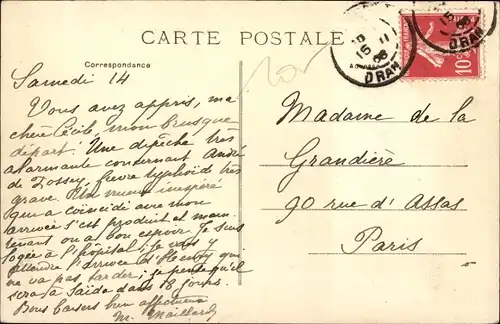 CARTE POSTALE
Correspondance
Samedi 14
Vous avez appris, ma
chère Cécile, mon brusque
départ! Une dépêche très
alarmante concernant André
de fièvre typhoïde très
grave. Un mieux inespéré
qui a coincidé avec mon
arrivée s'est produit et main
tenant on a bon espoir. Je suis
logée à l'hôpital; je vais y
attendre l'arrivée d' qui
ne va pas tarder; je pense qu'il
sera à Saïda dans 18 jours.
Bons baisers bien affectueux
M. Maillard
Madame de la
Grandière
90 rue d'Assas
Paris
ORAN
ORAN
10